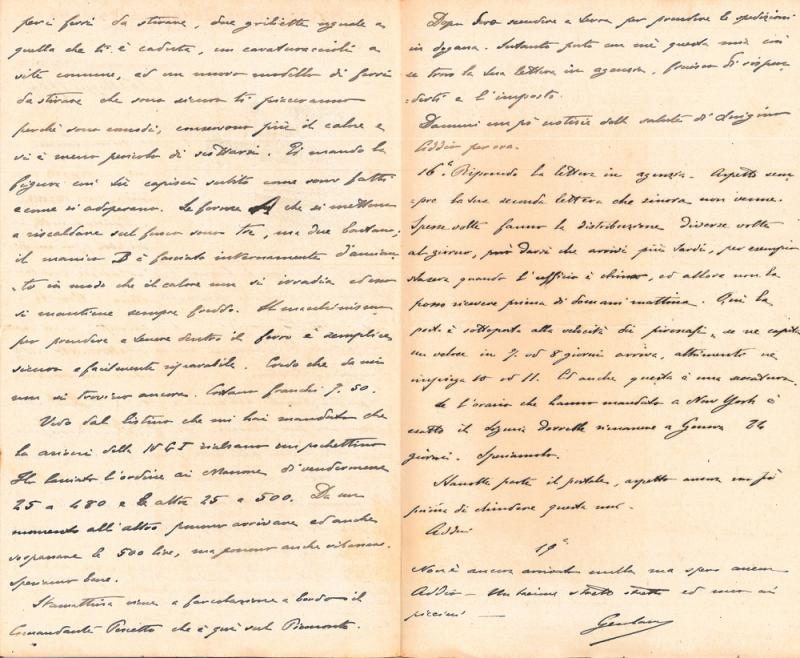 per i ferri da stirare, due griliette uguale a
quella che ti è caduta, un cavaturaccioli a
vite comune, ed un nuovo modello di ferri
da stirare che sono sicuro ti piaceranno
perchè sono comodi, conservano più il calore e
vi è meno pericolo di scottarsi. Ti mando la
figura così tu capisci subito come sono fatti
e come si adoperano. Le forme A che si mettono
a riscaldare sul fuoco sono tre, ma due bastano,
il manico B è fasciato internamente d'amian-
-to in modo che il calore non si irradia ed esso
si mantiene sempre freddo. Il macchinismo
per prendere e tenere dentro il ferro è semplice
sicuro e facilmente riparabile. Credo che da noi
non si trovino ancora. Costano franchi 7.50.
Vedo dal listino che mi hai mandato che
le azioni della NGI rialzano un pochettino
Ho lasciato l'ordine ai di vendermene
25 a 480 e le altre 25 a 500. Da un
momento all'altro possono arrivare ed anche
sorpassare le 500 lire, ma possono anche ribassare.
Speriamo bene.
Stamattina viene a far colazione a bordo il
Comandante che è qui sul Piemonte.
Dopo devo scendere a terra per prendere le spedizioni
in dogana. Intanto porto con me questa mia così
se trovo la tua lettera in agenzia, finisco di rispon-
-derti e l'imposto.
Dammi un pò notizie della salute di Luigino
Addio per ora.
16^a Riprendo la lettera in agenzia. Aspetto sem-
-pre la tua seconda lettera che sinora non venne.
Spesse volte fanno la distribuzione diverse volte
al giorno, può darsi che arrivi più tardi, per esempio
stasera quando l'ufficio è chiuso, ed allora non la
posso ricevere prima di domani mattina. Qui la
posta è sottoposta alla velocità dei piroscafi, se ne capita
un veloce in 7 od 8 giorni arriva, altrimenti ne
impiega 10 od 11. Ed anche questa è una seccatura.
Se l'orario che hanno mandato a New York è
esatto il Liguria dovrebbe rimanere a Genova 26
giorni. Speriamolo.
Stanotte parte il postale, aspetto ancora un pò
prima di chiudere questa mia.
Addio
19^a
Non è ancora arrivato nulla ma spero ancora
Addio - Un bacione stretto stretto ed uno ai
piccini -